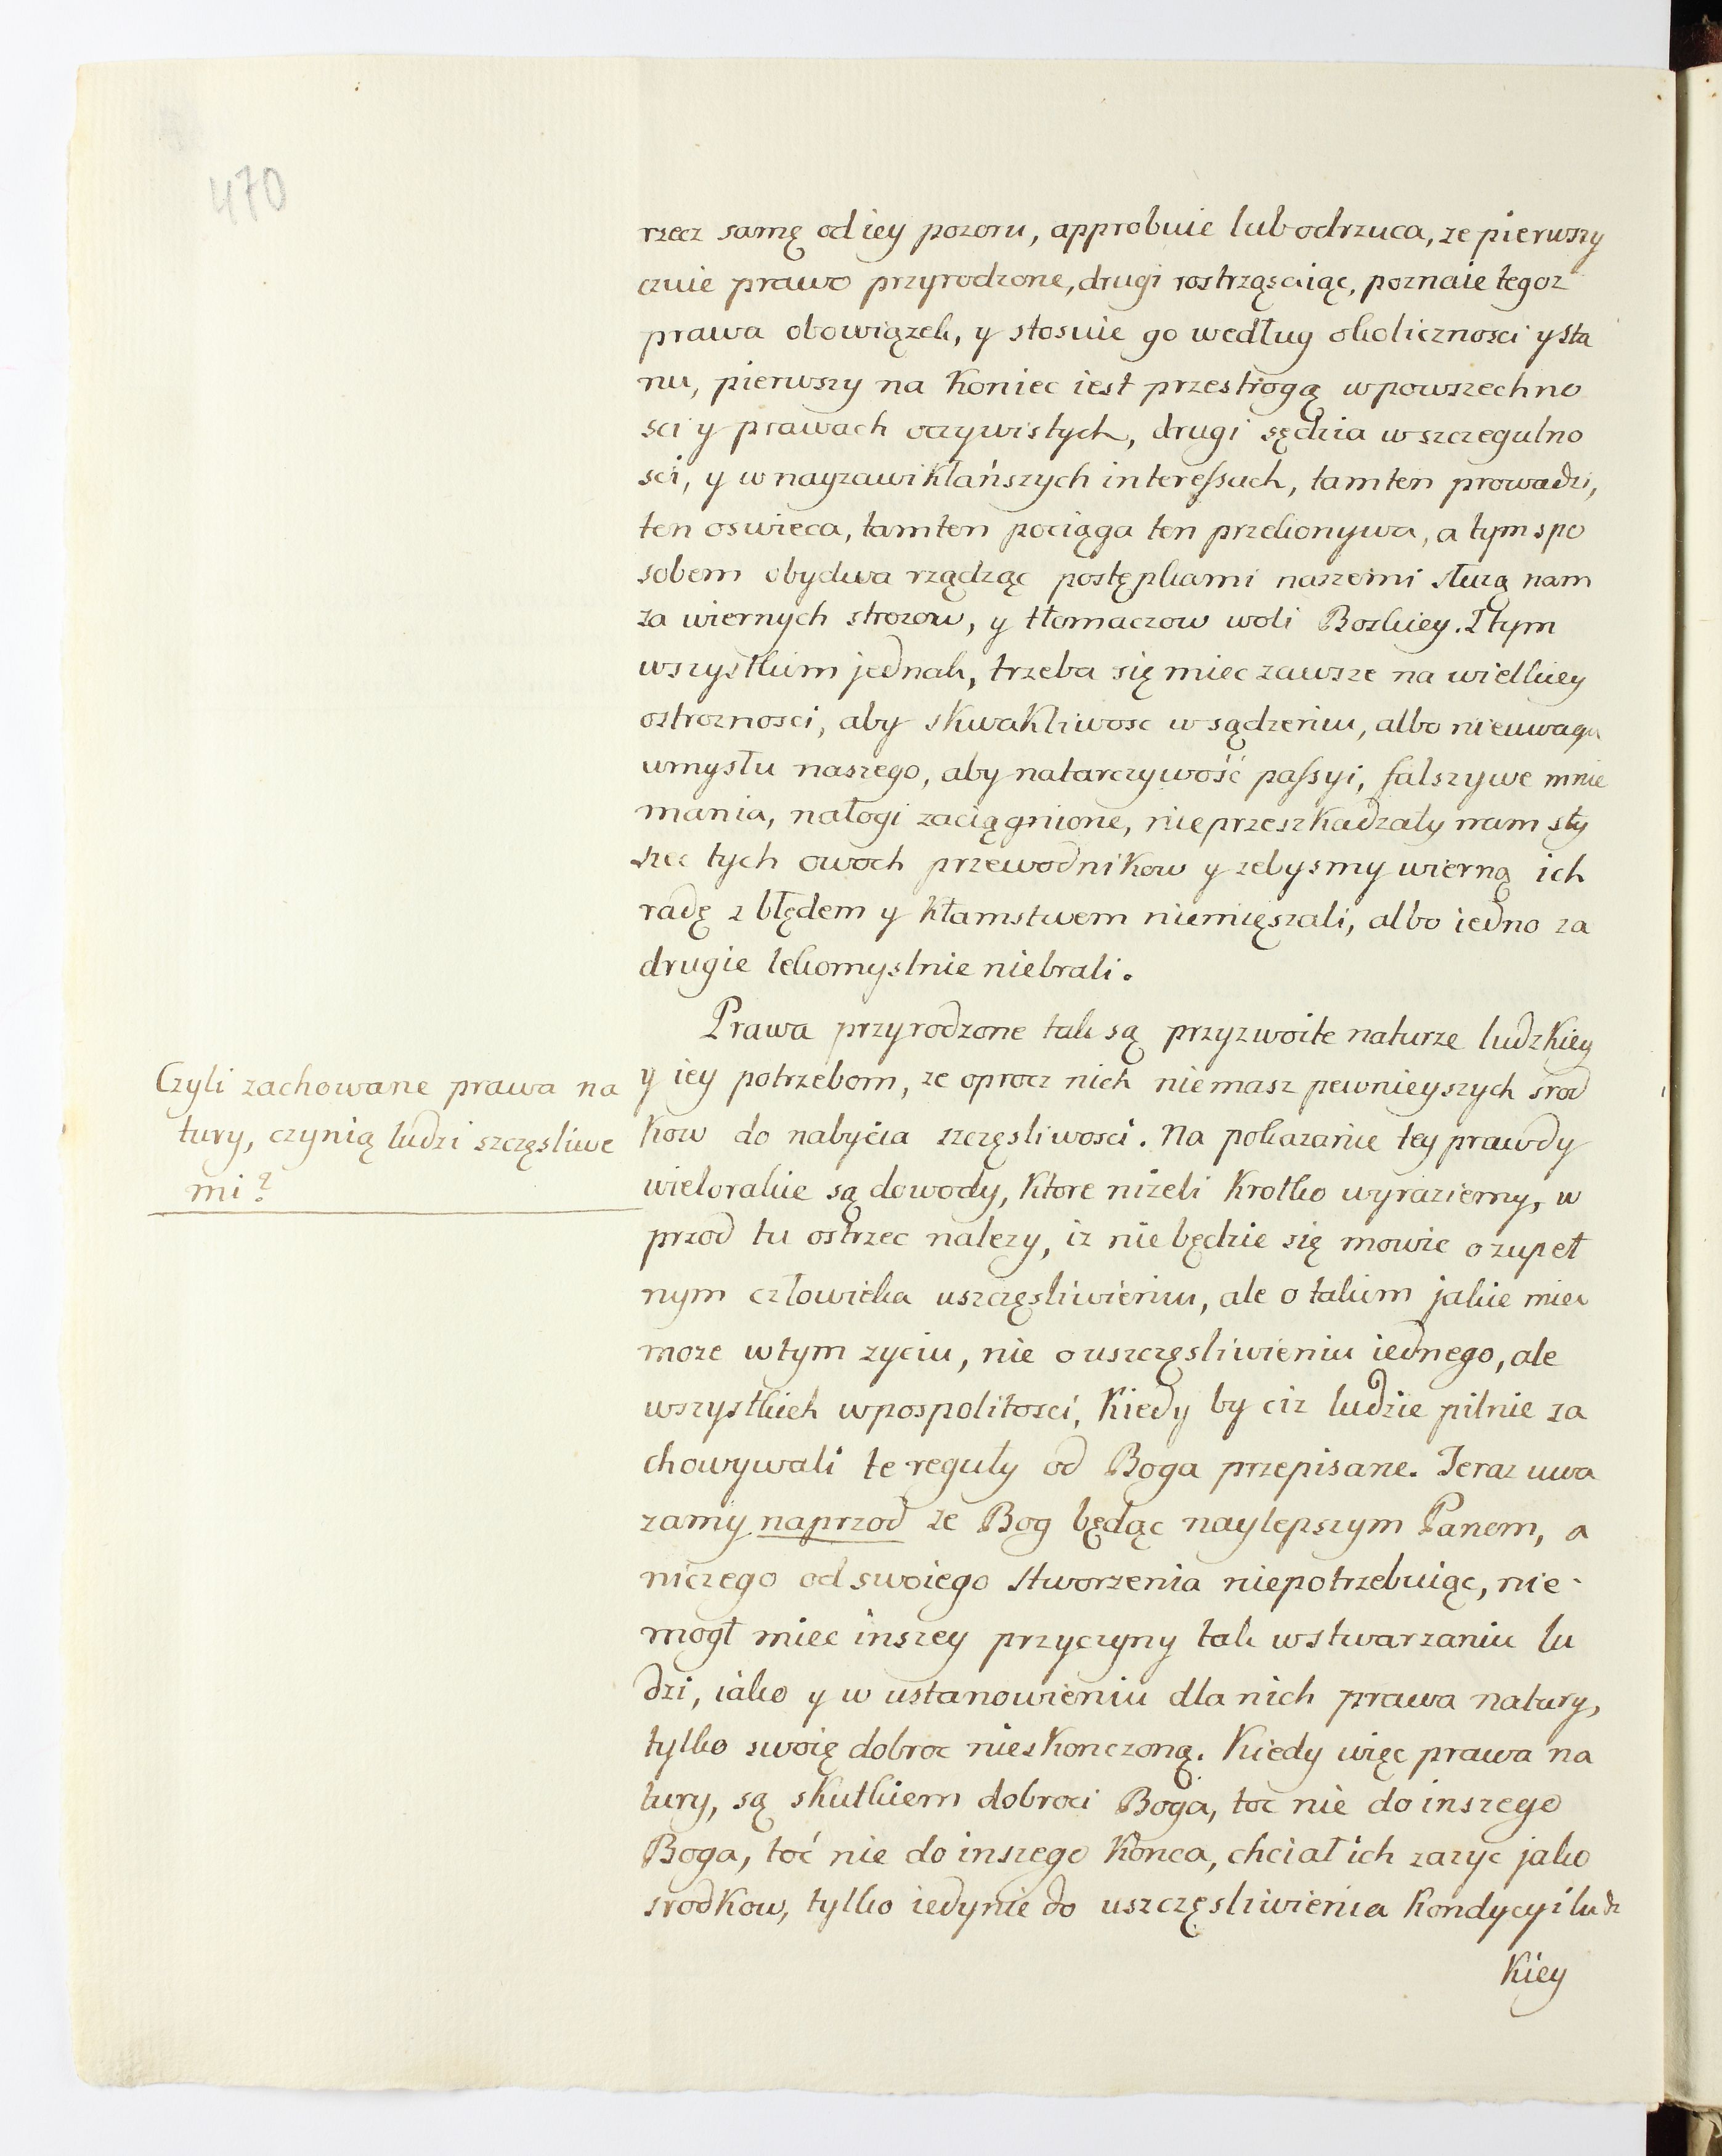 470
rzecz samę od iey pozoru, approbuie lub odrzuca, ze pierwszy
czuie prawo przyrodzone, drugi rostrząsaiąc, poznaie tegoz
prawa obowiązek, y stosuie go według okolicznosci y sta
nu, pierwszy na koniec iest przestrogą w powszechno
sci y prawach oczywistych, drugi sędzia w szczegulno
sci, y w nayzawikłańszych interessach, tamten prowadzi,
ten oswieca, tamten pociąga ten przekonywa, a tym spo
sobem obydwa rządząc postępkami naszemi słuzą nam
za wiernych strozow, y tłomaczow woli Boskiey. Z tym
wszystkim jednak, trzeba się miec zawsze na wielkiey
ostroznosci, aby skwakliwosc w sądzeniu, albo nieuwaga
umysłu naszego, aby natarczywość passyi, falszywe mnie
mania, nałogi zaciągnione, nieprzeszkadzały nam sły
szec tych owoch przewodnikow y zebysmy wierną ich
radę z błędem y kłamstwem niemięszali, albo iedno za
drugie lekomyslnie niebrali.
Prawa przyrodzone tak są przyzwoite naturze ludzkiey
Czyli zachowane prawa na
tury, czynią ludzi szczęsliwe
mi?
y iey potrzebom, ze oprocz nich niemasz pewnieyszych srod
kow do nabycia szczęsliwosci. Na pokazanie tey prawdy
wielorakie są dowody, ktore nizeli krotko wyraziemy, w
przod tu ostrzec nalezy, iz nie będzie się mowic o zupeł
nym człowieka uszczęsliwieniu, ale o takim jakie miec
moze w tym zyciu, nie o uszczęsliwieniu iednego, ale
wszystkich w pospolitosci, kiedy by ciz ludzie pilnie za
chowywali te reguły od Boga przepisane. Teraz uwa
zamy naprzod ze Bog będąc naylepszym Panem, a
niczego od swoiego stworzenia niepotrzebuiąc, nie-
mogł miec inszey przyczyny tak w stwarzaniu lu
dzi, iako y w ustanowieniu dla nich prawa natury,
tylko swoię dobroc nieskonczoną. Kiedy więc prawa na
tury, są skutkiem dobroci Boga, toc nie do inszego
Boga, toć nie do inszego konca, chciał ich zazyc jako
srodkow, tylko iedynie do uszczęsliwienia kondycyi ludz
kiey